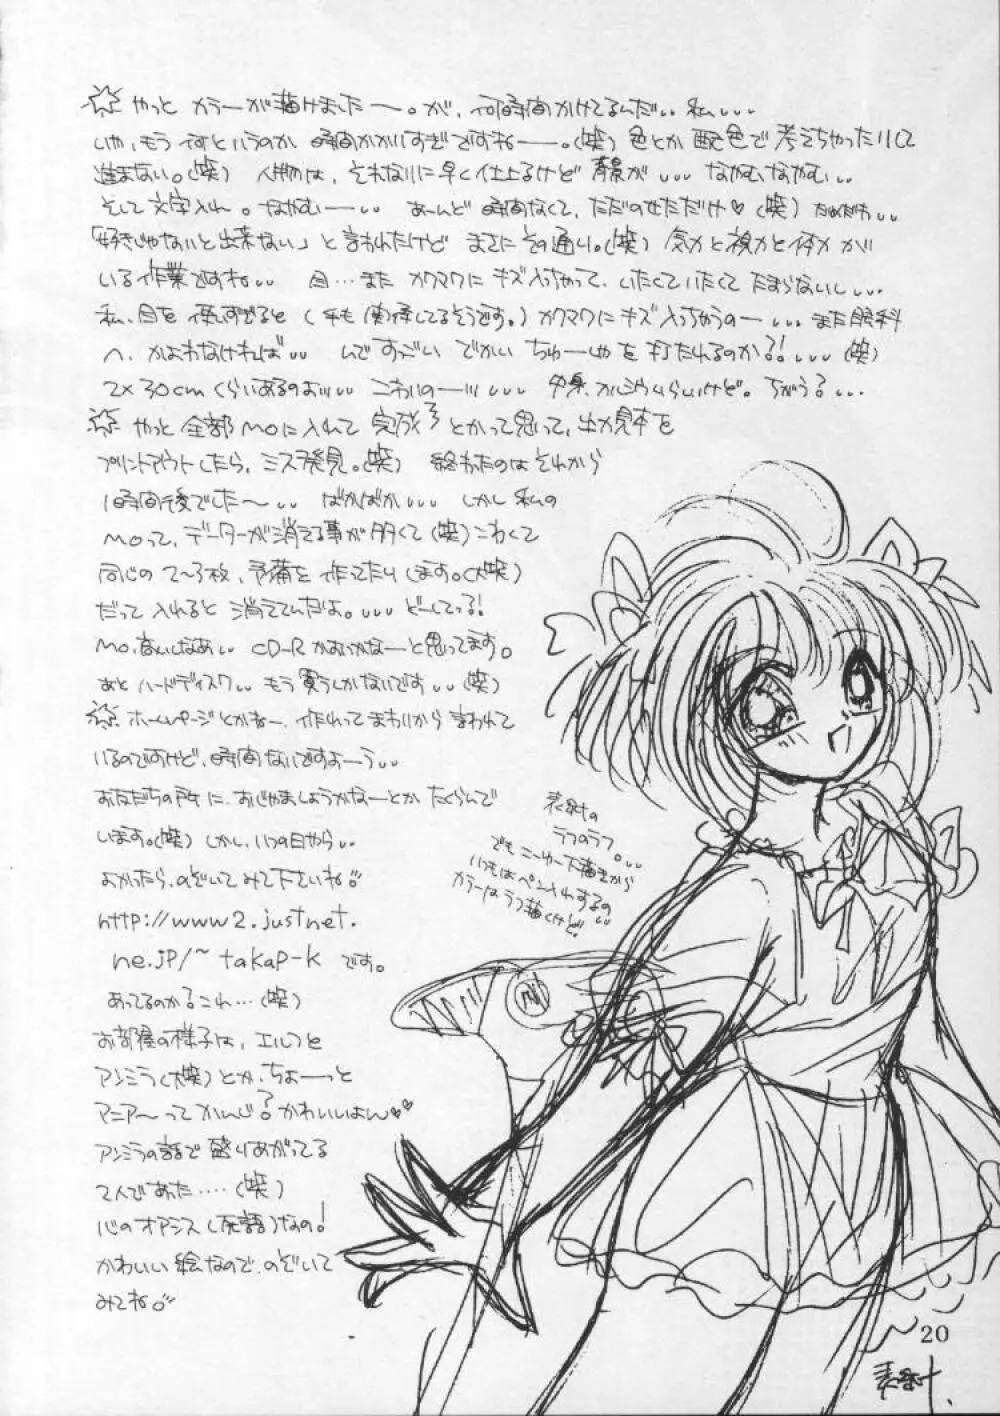 ☆やっと カラーが描けました〜。が、何時間かけてるんだ‥私‥‥
いや、もう何というのか 時間かかりすぎですねー。(笑) 色とか配色で考えちゃったりして
進まない。(笑) 人物は、それなりに早く仕上るけど 背景が‥‥ なやむなやむ‥
そして文字入れ。なやむー‥ あーんど 時間なくて、ただのせただけ♥(笑) だめだわ‥
「好きじゃないと出来ない」と言われたけど まさにその通り。(笑) 気力と視力と体力が
いる作業ですね‥ 目…また カクマクにキズ入っちゃって、いたくていたくて たまらないし‥‥
私、目を使いすぎると (手も関係してるそうです。) カクマクにキズ入っちゃうのー‥‥また眼科
へ、かよわなければ‥ んで すっごい でかい ちゅーしゃを打たれるのか?!‥‥(笑)
2×30cmくらいあるのよ‥‥ こわいのー‥‥ 中身、カルシウムらしいけど。ちがう?‥‥
☆やっと 全部MOに入れて 完成 とかって思って、出力見本を
プリントアウトしたら、ミス発見。(笑) 終わったのは それから
1時間後でした〜‥ ばかばか‥‥ しかし 私の
MOって、データーが消える事が多くて(笑) こわくて
同じの 2〜3枚、予備を作ってたりします。(大笑)
だって 入れると 消えてんだよ。‥‥ どーしてっ?!
MO、高いしなあ‥ CD-R かおうかなーと思ってます。
あと ハードディスク‥ もう買うしかないです‥(笑)
☆ホームページとかねー、作れって まわりから言われて
いるのですけど、時間ないですよーう‥
お友だちの所に、おじゃましようかなーとか たくらんで
います。(笑) しかし、いつの日やら‥
よかったら、のぞいてみて下さいね。
http://www2.justnet.
ne.jp/~takap-k です。
あってるのか?これ…(笑)
お部屋の様子は、エルフと
アンミラ(大笑)とか、ちょーっと
マニア〜ってかんじ?かわいいよん♥♥
アンミラの話で 盛りあがってる
2人であった‥‥(笑)
心のオアシス(死語)なの!
かわいい絵なので、のぞいて
みてね。
表紙の
ラフのラフ。‥
でもこーゆー下描きから
いつもはペン入れするの‥
カラーはラフ描くけど。
20